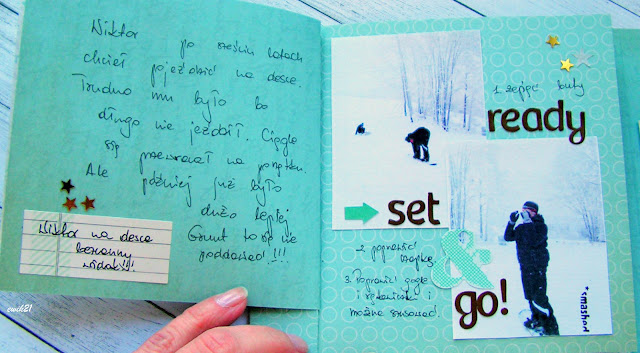 Wiktor po sześciu latach
chciał pojeździć na desce.
Trudno mu było bo
długo nie jeździł. Ciągle
się przewracał na początku.
Ale później już było
dużo lepiej
Grunt to się nie
poddawać!!!
Wiktor na desce
bezcenny
widok!!!
cwick21
1 zejąć buty
ready
set
&
go!
2. poprawić
czapkę
3. Poprawić gogle
i rękawiczki i
można szusować.
*smashed